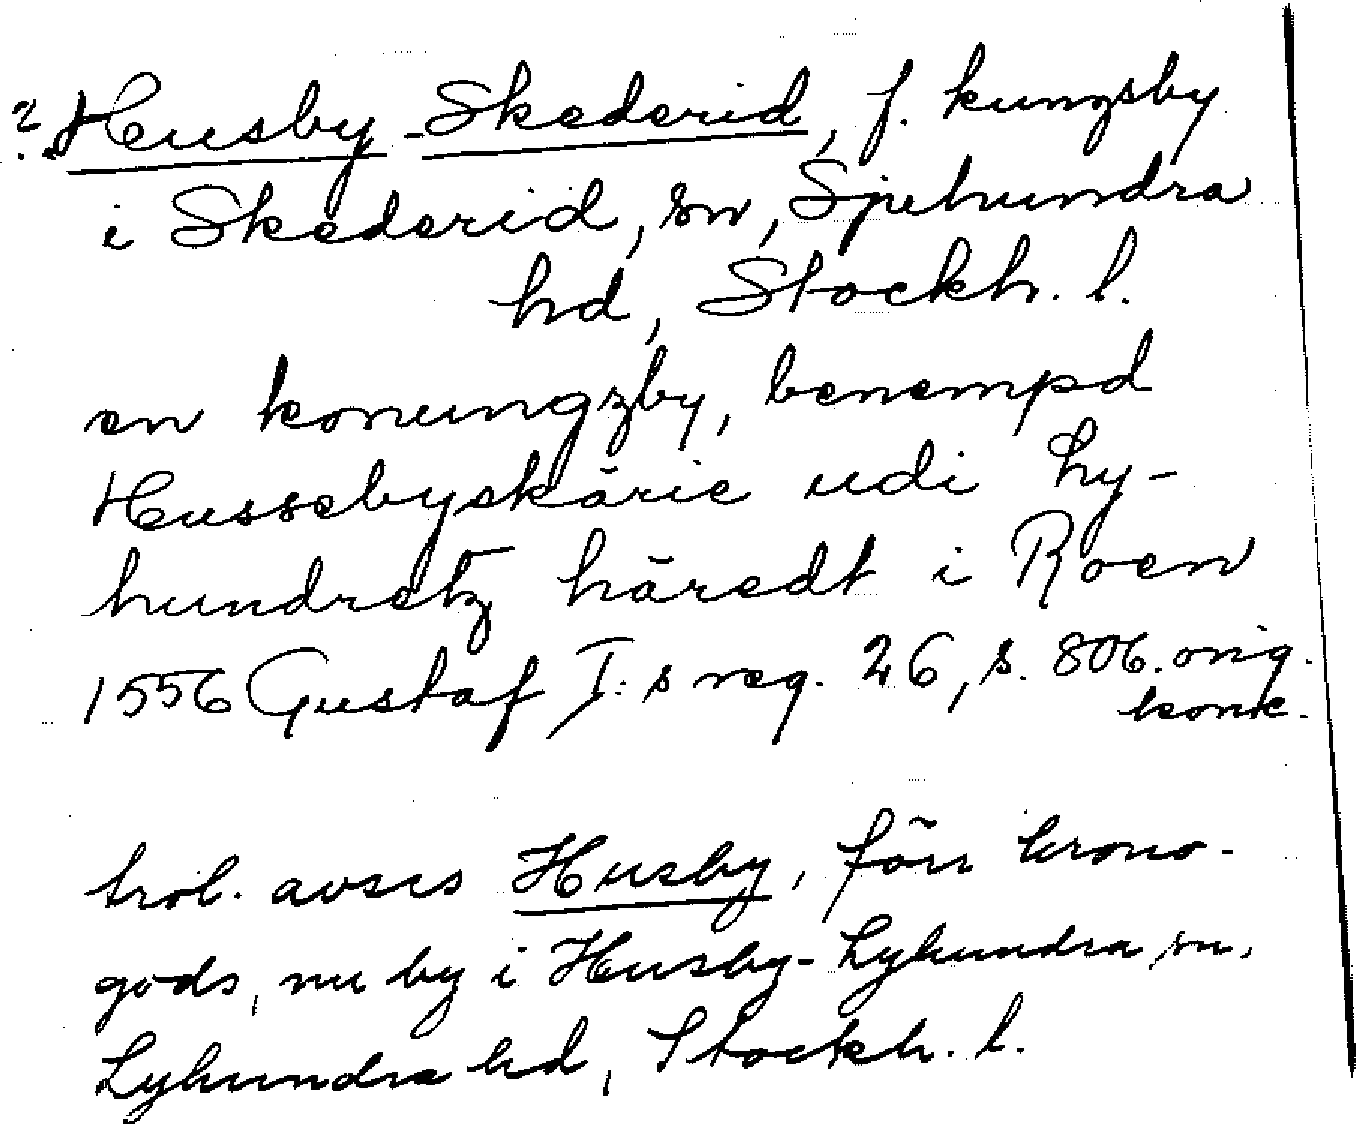 ? Husby-Skederid, f. kungsby
i Skederid, sn, Sjuhundra
hd, Stockh. l.
en konungzby, benempd
Hussebyskärie udi hy-
hundretz häredt i Roen
1556 Gustaf I:s reg. 26, s. 806. orig.
konc.
trol. avses Husby, förr krono-
gods, nu by i Husby-Lyhundra sn,
Lyhundra hd, Stockh. l.